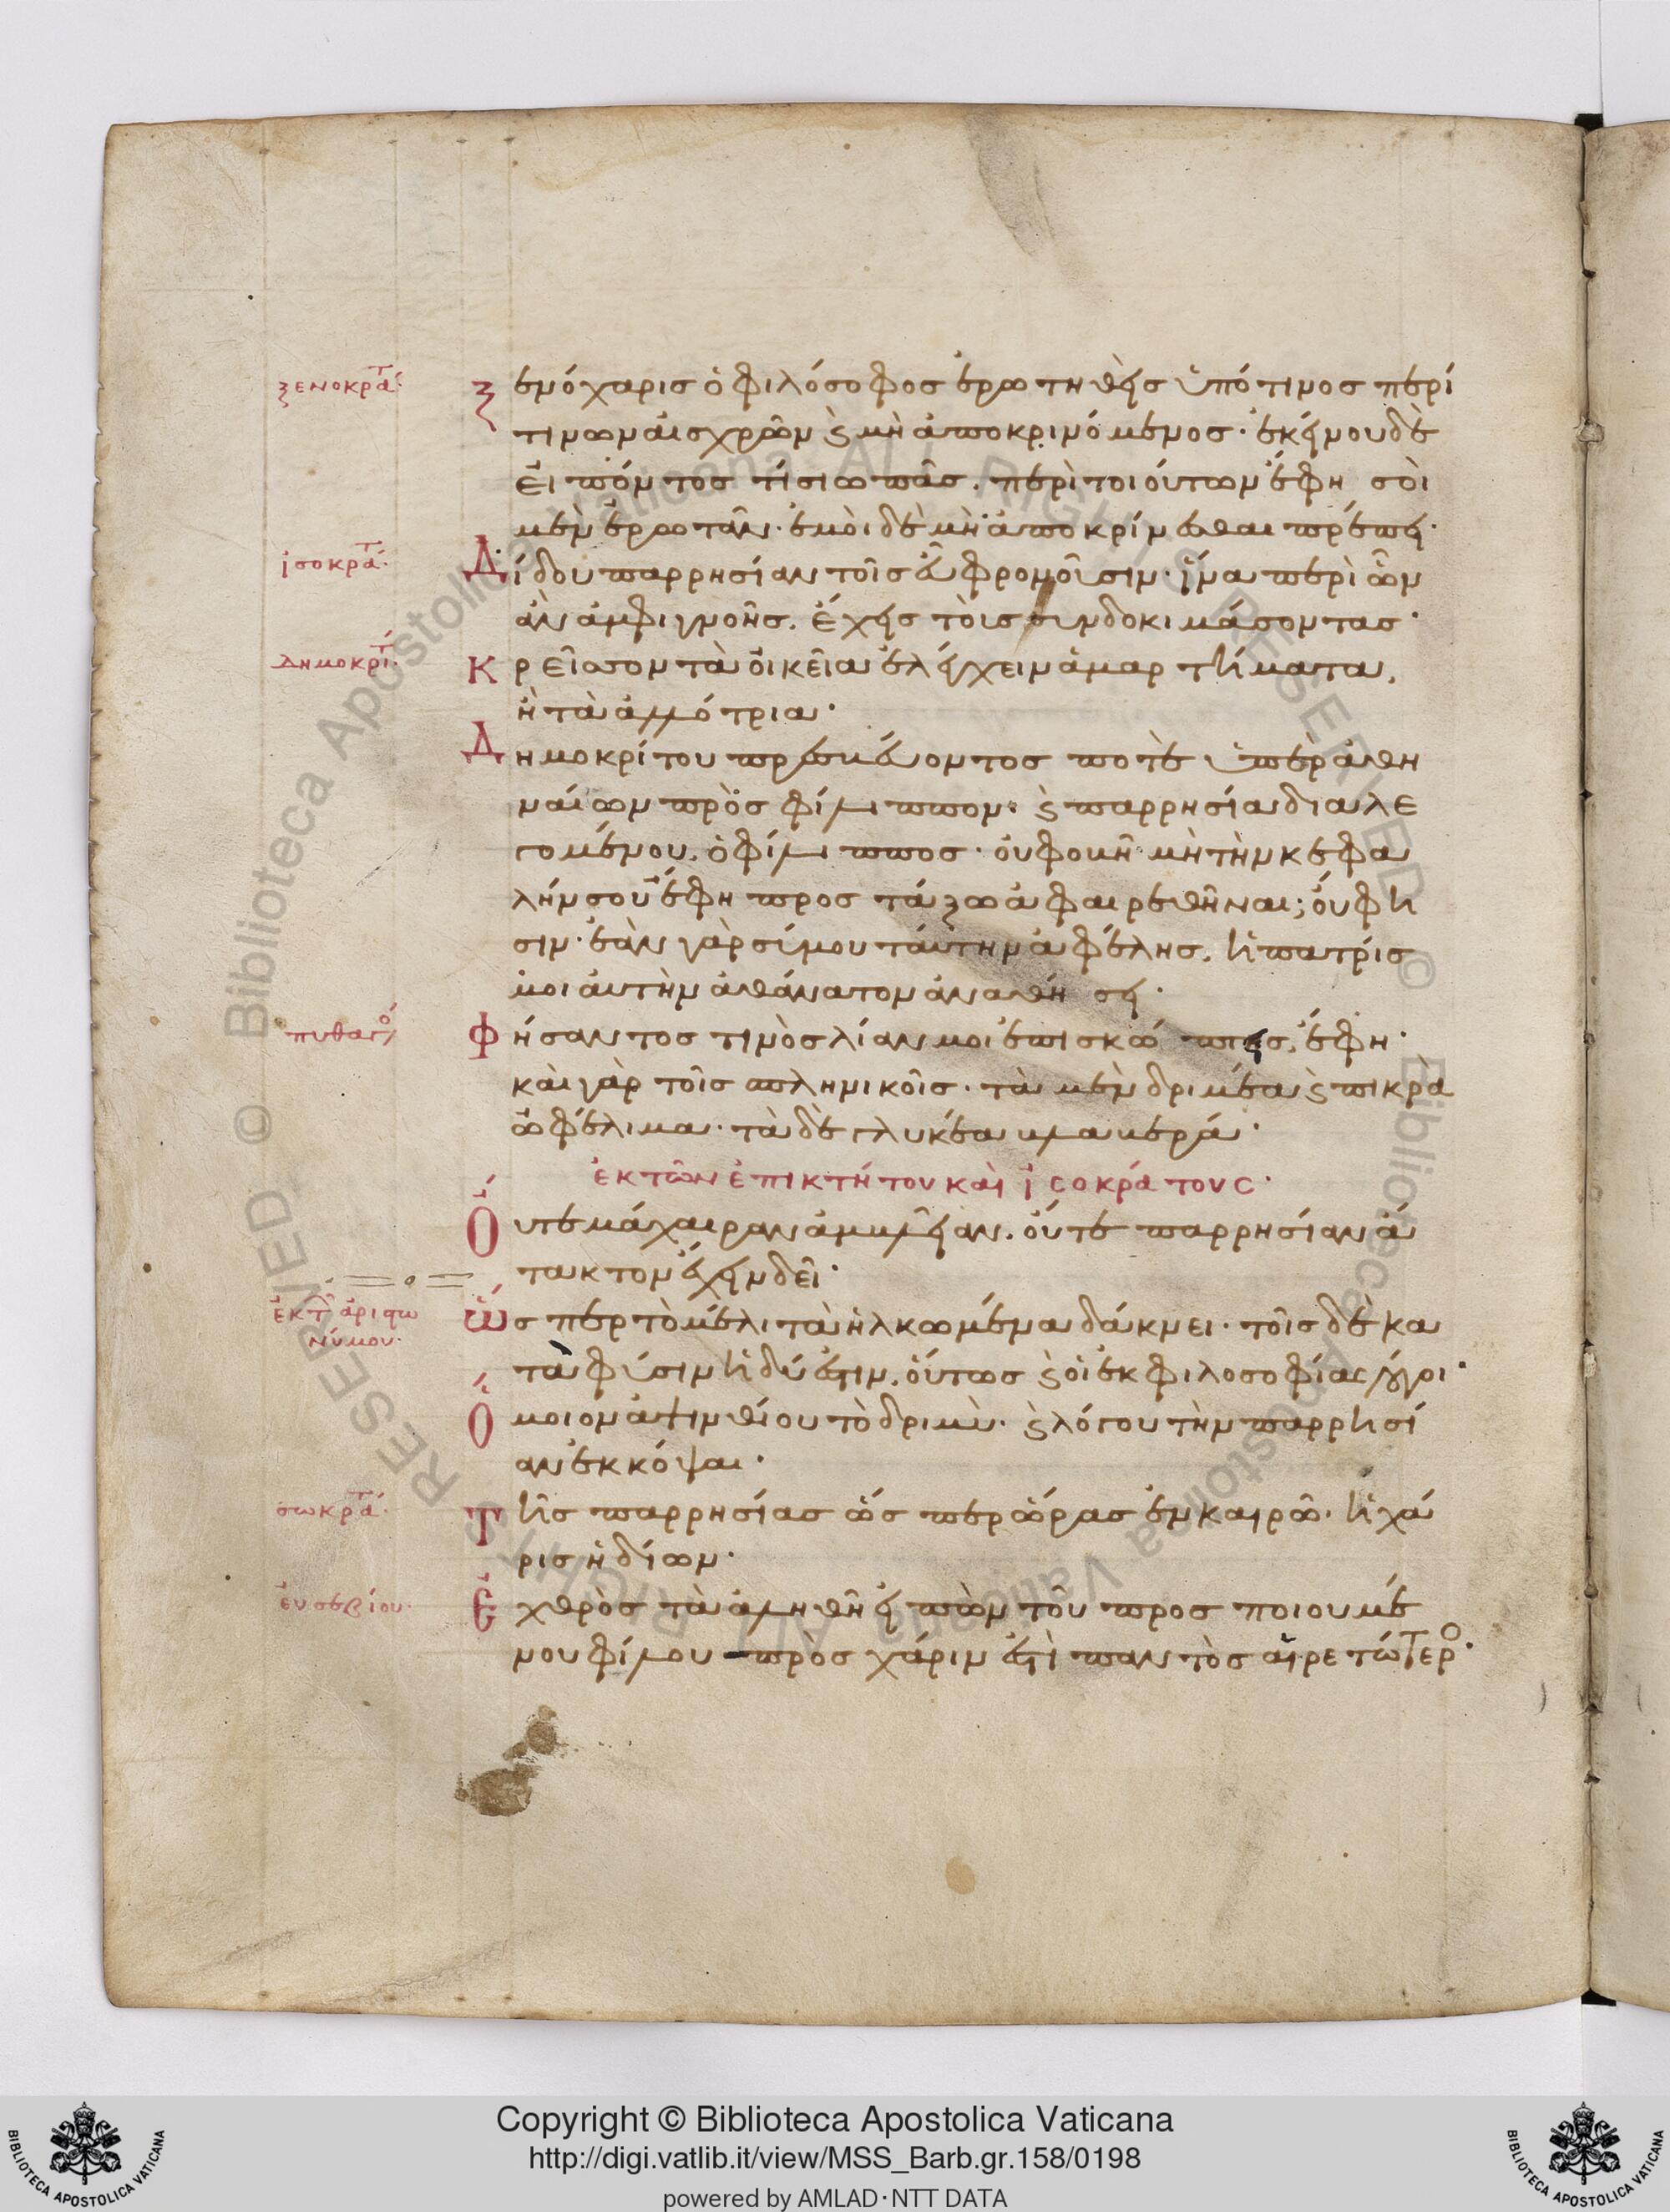 ξενοκρατ
Ξενόχαρις ὁ φιλόσοφος ἐρωτηθεὶς ὑπό τινος περί
τινων αἰσχρῶν ϗ μὴ ἀποκρινόμενος· ἐκείνου δὲ
εἰπόντος τί σιωπᾶς. περὶ τοιούτων ἔφη σοὶ
μὲν ἐρωτᾶν· ἐμοὶ δὲ μὴ ἀποκρίνεσθαι πρέπει·
ἰσοκρατ
Δίδου παρρησίαν τοῖς εὖ φρονοῦσιν· ἵνα περὶ ὧν
ἂν ἀμφιγνοῇς. ἔχεις τοὺς συνδοκιμάσοντας·
δημοκριτ
Κρεῖσσον τὰ οἰκεῖα ἐλέγχειν ἁμαρτήματα,
ἢ τὰ ἀλλότρια·
Δημοκρίτου πρεσβεύοντος ποτὲ ὑπὲρ ἀθη
ναίων πρὸς φίλιππον· ϗ παρρησία διαλε
γομένου. ὁ φίλιππος· οὐ φοβῇ μὴ τὴν κεφα
λήν σου ἔφη προστάξω ἀφαιρεθῆναι; οὔ φη
σιν· ἐὰν γὰρ σύ μου ταύτην ἀφέλης. ἡ πατρίς
μοι αὐτὴν ἀθάνατον ἀναθήσει·
πυθαγο
Φήσαντος τινὸς λίαν μοι ἐπισκώπτεις, ἔφη·
καὶ γὰρ τοῖς σπληνικοῖς· τὰ μὲν δριμέα ϗ πικρὰ
ὠφέλιμα· τὰ δὲ γλυκέα βλαβερά·
ἐκ τῶν ἐπικτήτου καὶ ἰσοκράτους·
Οὔτε μάχαιραν ἀμβλεῖαν. οὔτε παρρησίαν ἄ
τακτον ἔχειν δεῖ·
ἐκ τ ἀριστω
νύμου·
Ὥσπερ τὸ μέλι τὰ ἡλκωμένα δάκνει· τοῖς δὲ κα
τὰ φύσιν ἡδύ ἐστιν. οὕτως ϗ οἱ ἐκ φιλοσοφίας λόγοι·
Ὅμοιον ἀψινθίου τὸ δριμὺ· ϗ λόγου τὴν παρρησί
αν ἐκκόψαι·
σωκρατ
Τῆς παρρησίας ὥσπερ ὥρας ἐν καιρῷ· ἡ χά
ρις ἡδίων·
εὐσεβίου·
Ἐχθρὸς τὰ ἀληθῆ εἰπὼν τοῦ προσποιουμέ
νου φίλου πρὸς χάριν ἐστὶ παντὸς αἱρετώτερο·
Copyright © Biblioteca Apostolica Vaticana
http://digi.vatlib.it/view/MSS_Barb.gr.158/0198
powered by AMLAD·NTT DATA